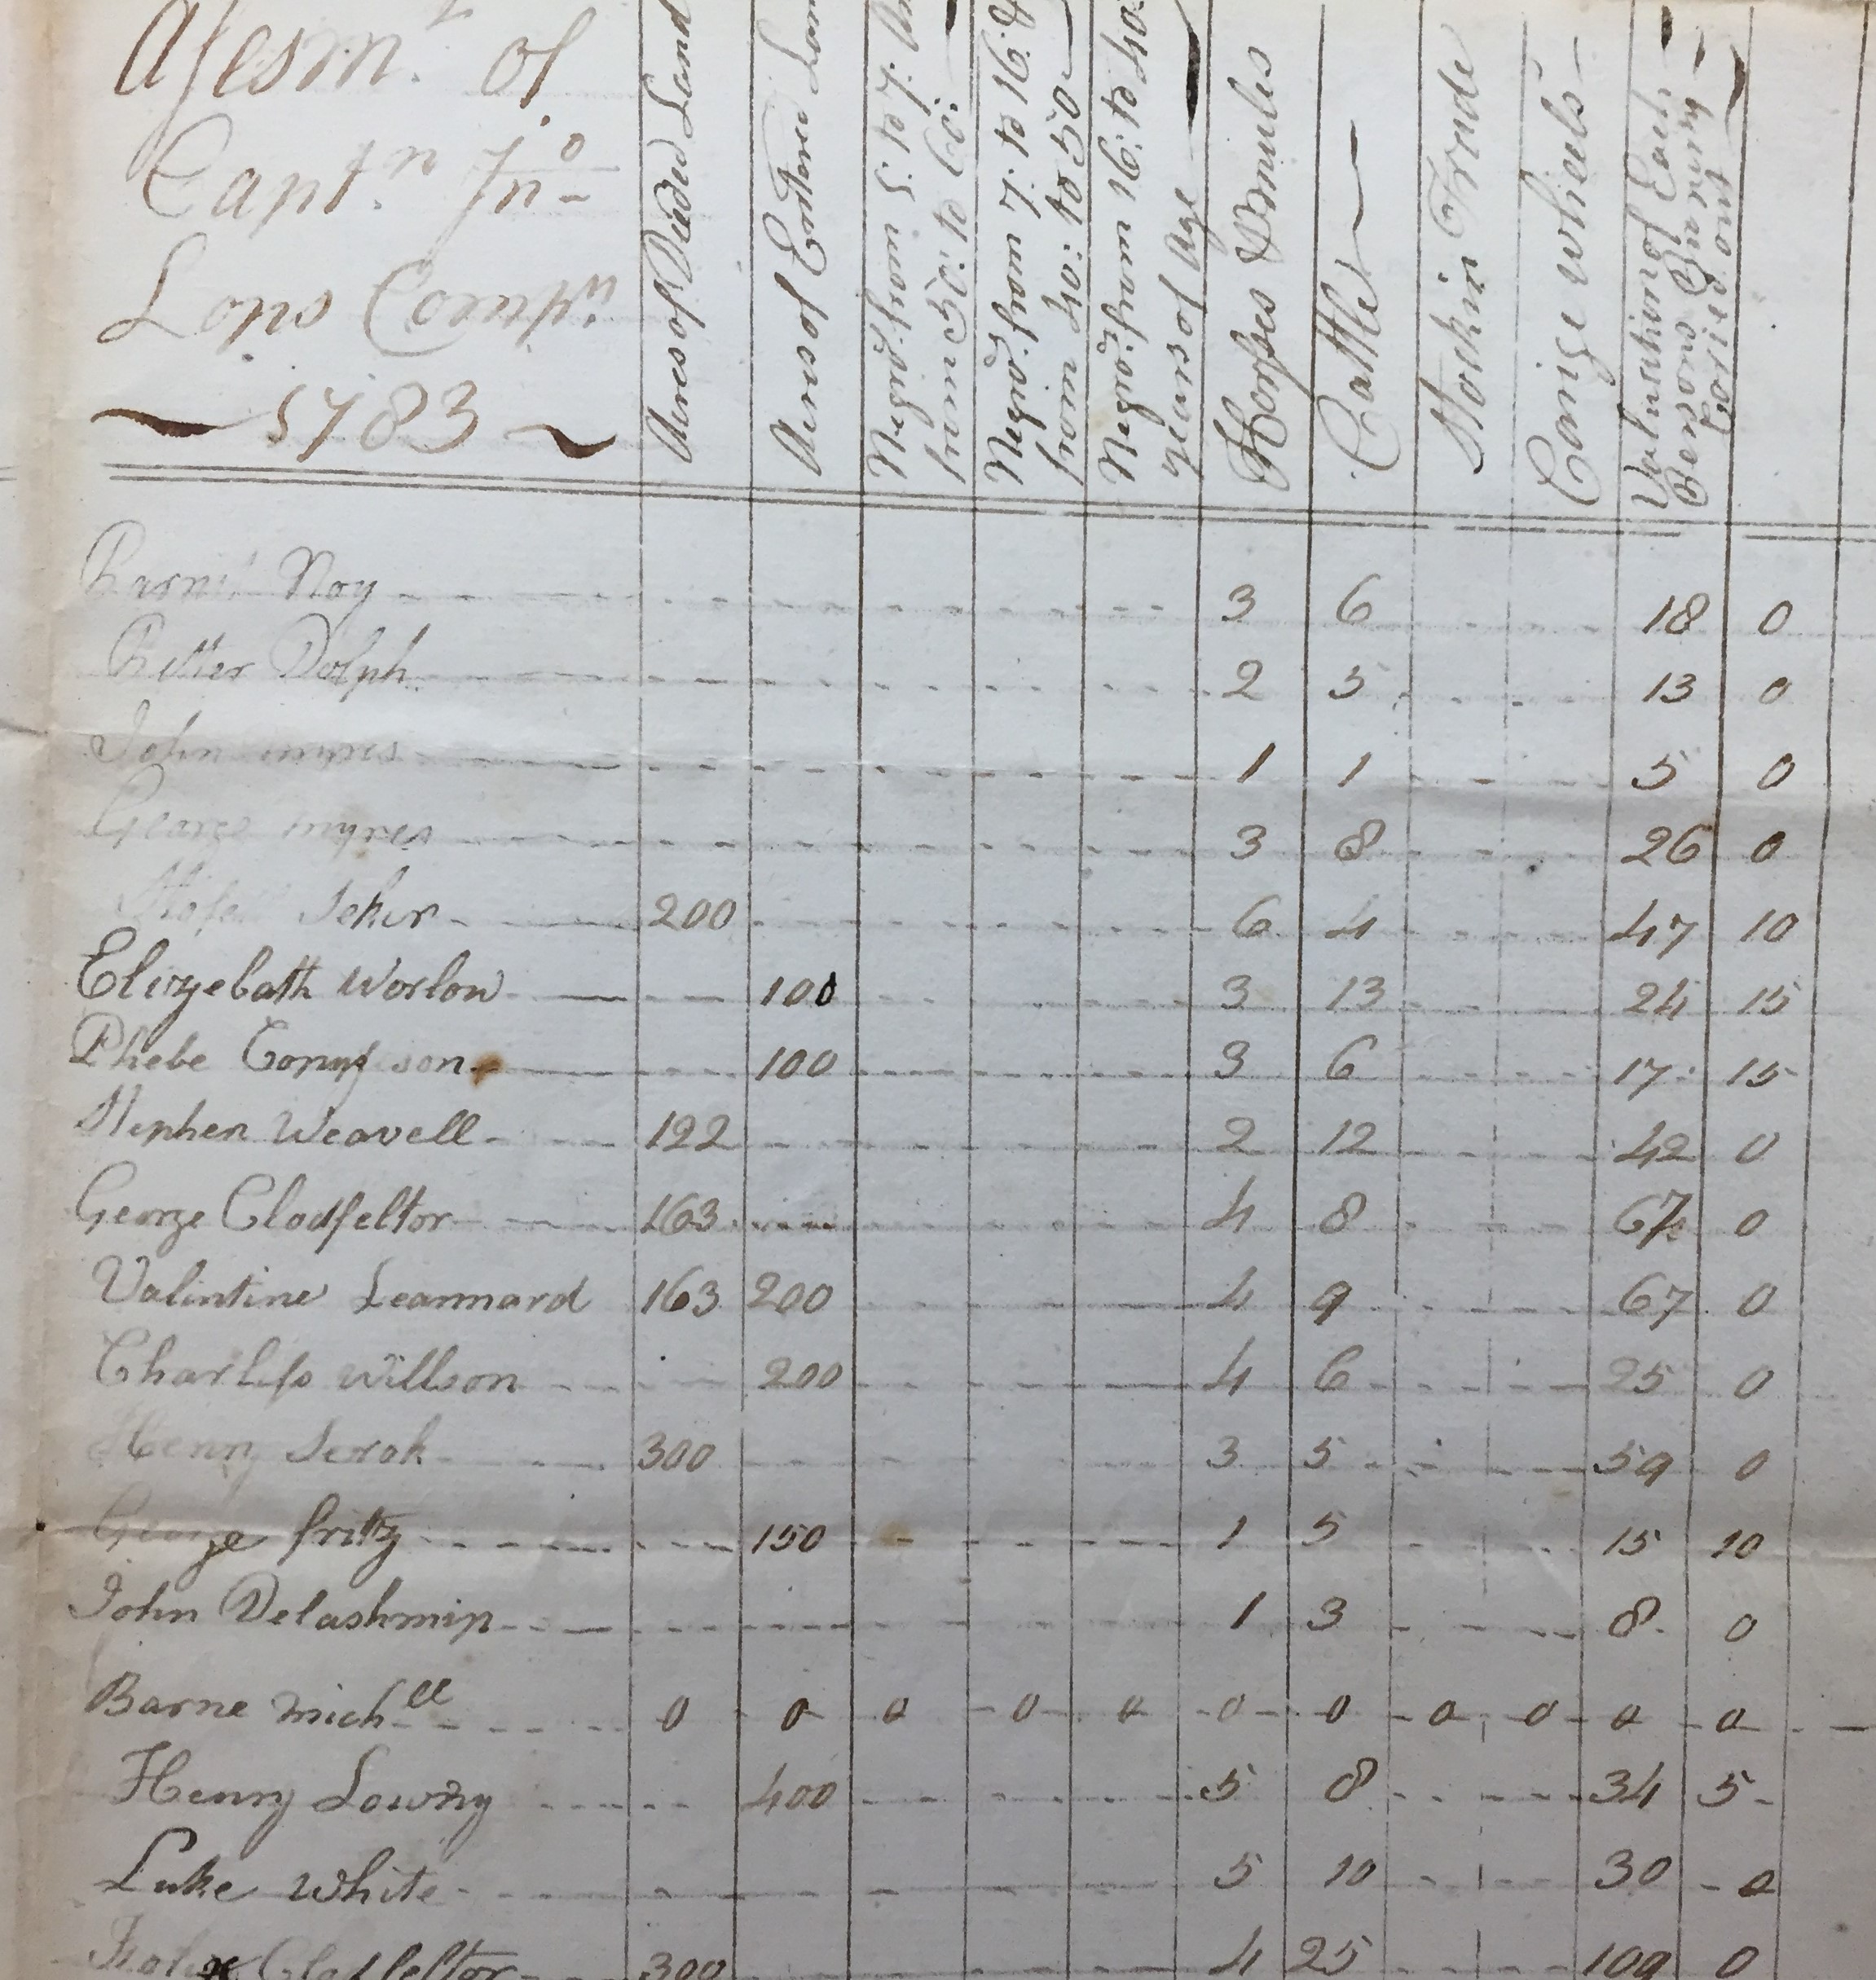 Assesm.t of
Capt.n Jno
Lops Comp.n
1783
Acres of Deeded Land
Acres of Entered Land
Negro.s from 5: to 7:
from 50: to 60:
Negro.s from 7: to 16: &
from 40: to 50
Negro.s from 16: to 40:
years of Age
Horses & mules
Cattle
Stock in Trade
Carige wheels
Valuation of Each
Persons
Noy 3 6 18 0
Dolph 2 5 13 0
John myres 1 1 5 0
George myres 3 8 26 0
200 6 4 47 10
Elizyebath Worlow 100 3 13 24 15
Phebe 100 3 6 17 15
Stephen Weavell 122 2 12 42 0
George Clodfeltor 163 4 8 0
Valintine Leannard 163 200 4 9 67 0
Charless Willson 200 4 6 25 0
Henry 300 3 5 59 0
George fritz 150 1 5 15 10
John Delashmip 1 3 8 0
Barne mich.ll 0 0 0 0 0 0 0 0 0 0 0
Henry Lowry 400 5 8 34 5
Luke White 5 10 30 0
Clodfeltor 300 4 25 109 0